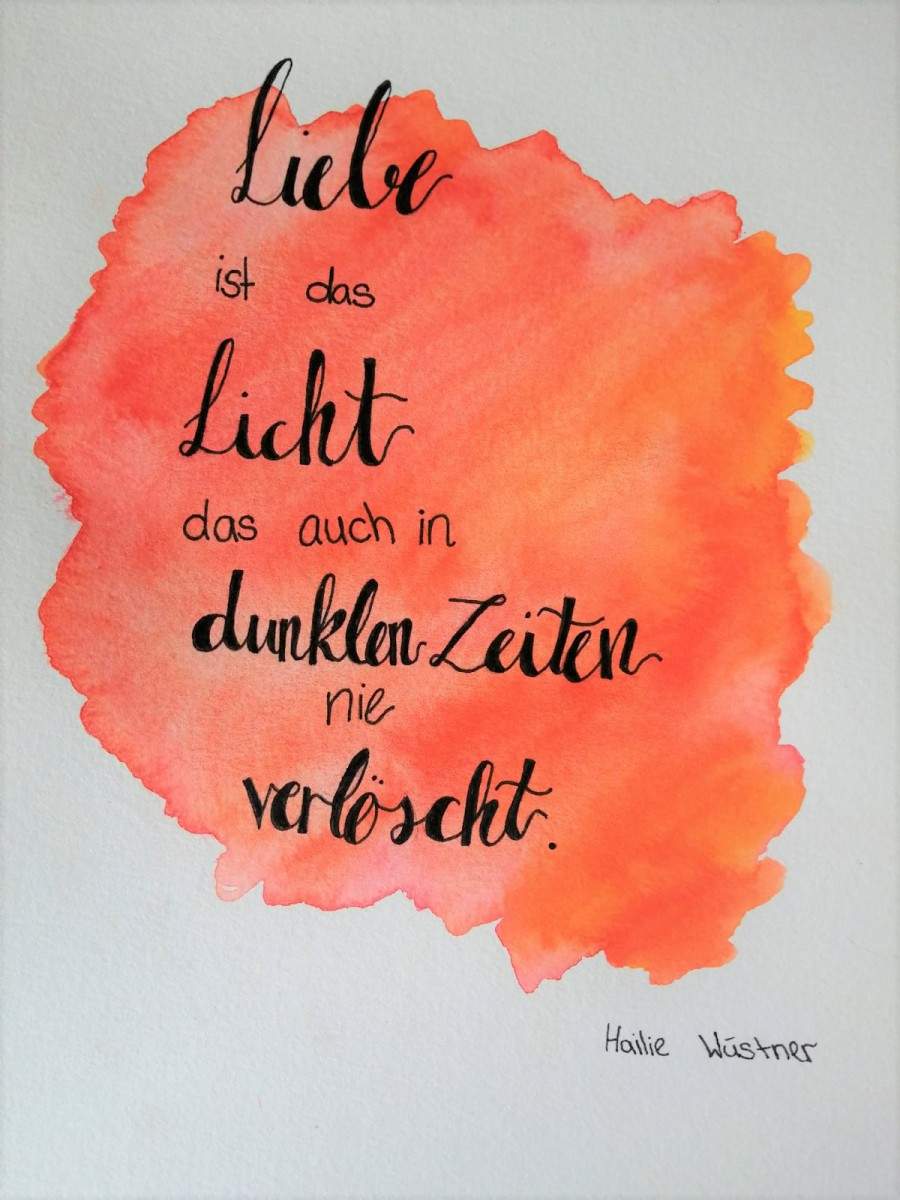 Liebe
ist das
Licht
das auch in
dunklen Zeiten
nie
verlöscht.
Hailie Wüstner